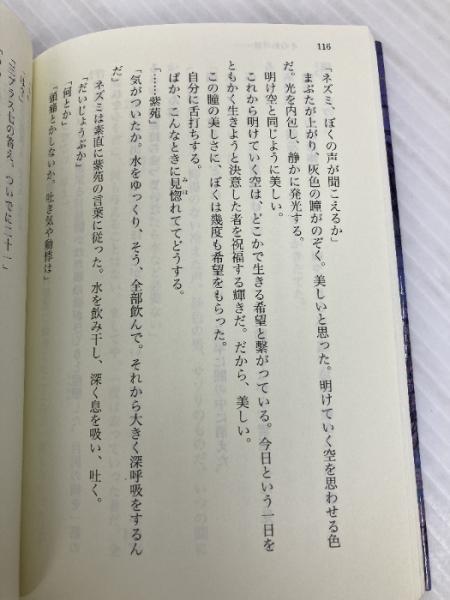 116
「ネズミ、ぼくの声が聞こえるか」
まぶたが上がり、灰色の瞳がのぞく。美しいと思った。明けていく空を思わせる色
だ。光を内包し、静かに発光する。
明け空と同じように美しい。
これから明けていく空は、どこかで生きる希望と繋がっている。今日という一日を
ともかく生きようと決意した者を祝福する輝きだ。だから、美しい。
この瞳の美しさに、ぼくは幾度も希望をもらった。
自分に舌打ちする。
ばか、こんなときに見惚れててどうする。
みほ
「……紫苑」
「気がついたか。水をゆっくり、そう、全部飲んで。それから大きく深呼吸をするん
だ」
ネズミは素直に紫苑の言葉に従った。水を飲み干し、深く息を吸い、吐く。
「だいじょうぶか」
「何とか」
「頭痛とかしないか、吐き気や動悸は」
「ほう」
「三プラス七の答え、ついでに二十一